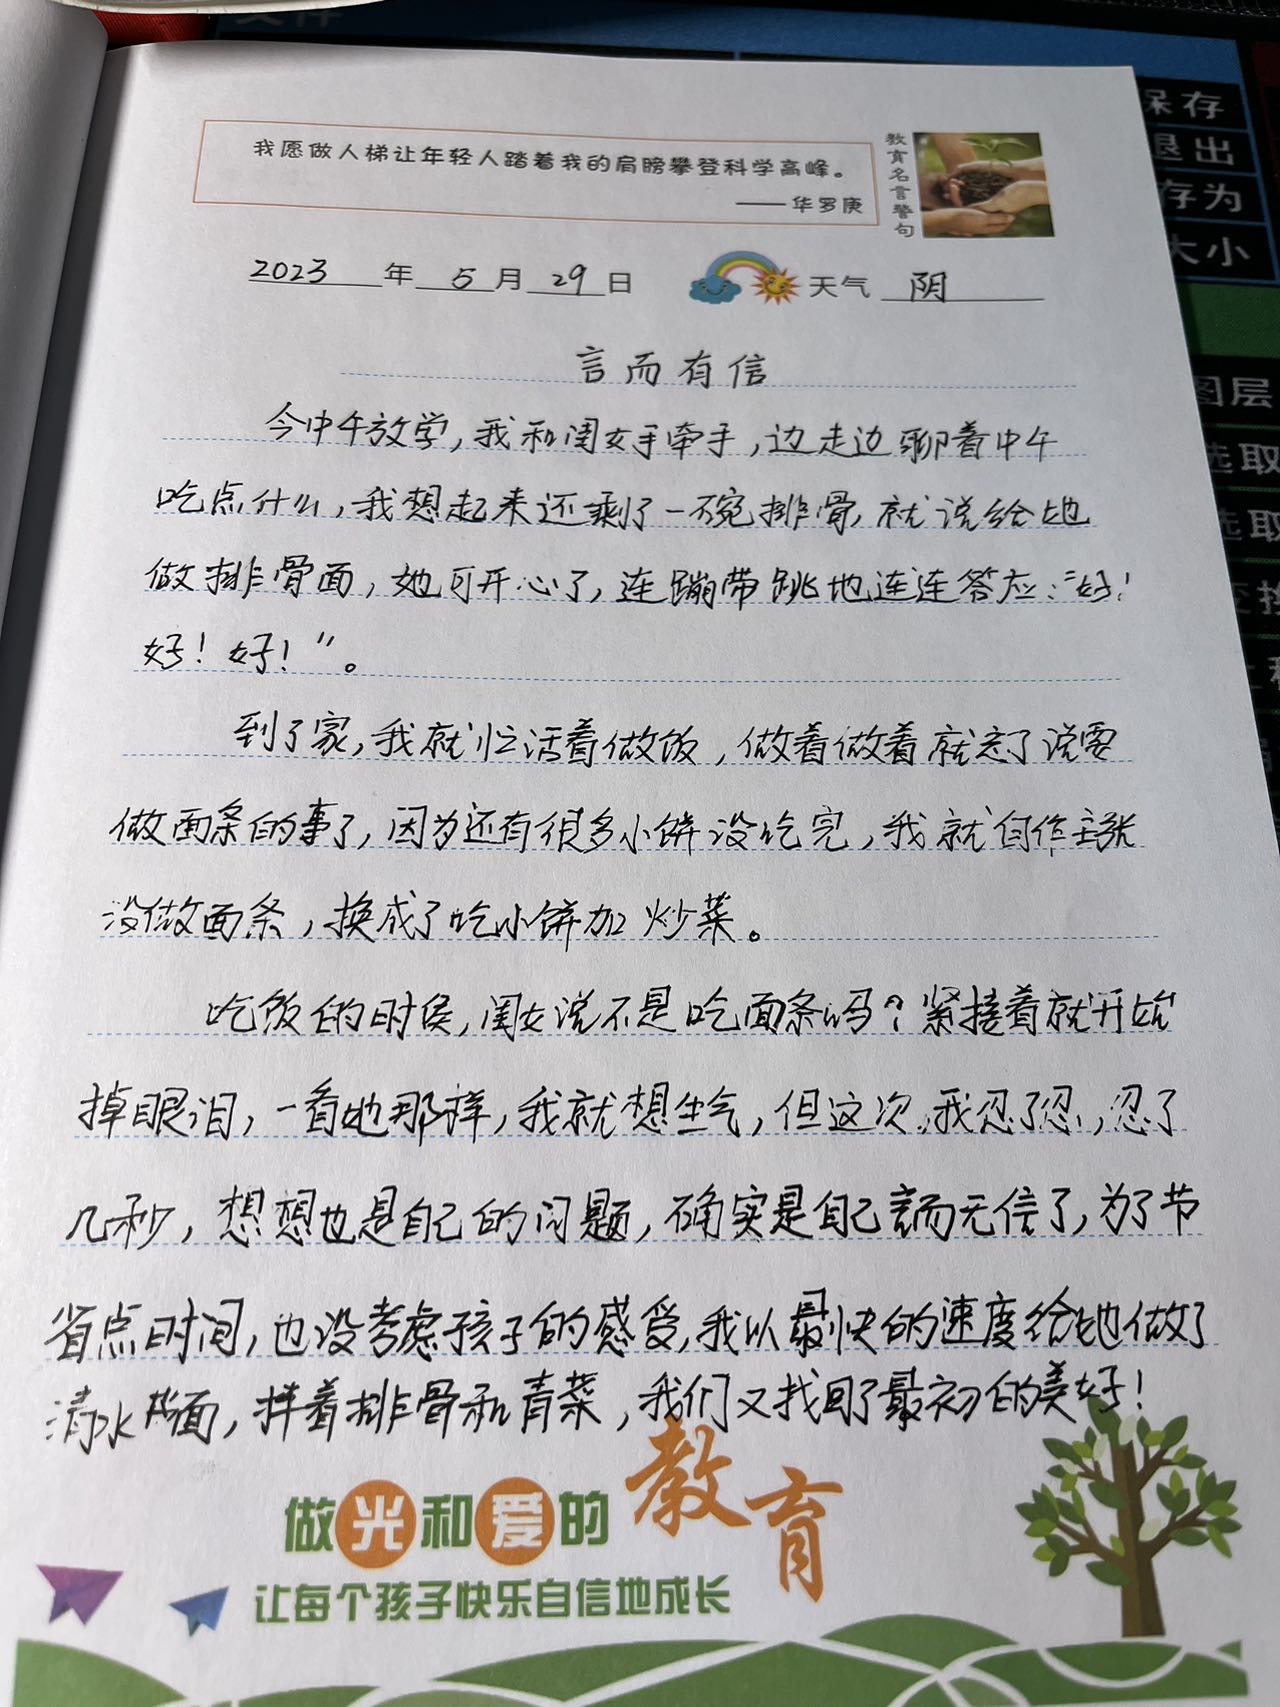 文件
保存
退出
存为
大小
图层
选取
选取
我愿做人梯让年轻人踏着我的肩膀攀登科学高峰。
——华罗庚
教育名言警句
2023年5月29日 天气 阴
言而有信
今中午放学，我和闺女手牵手，边走边聊着中午
吃点什么，我想起来还剩了一碗排骨，就说给她
做排骨面，她可开心了，连蹦带跳地连连答应：“好！
好！好！”。
到了家，我就忙活着做饭，做着做着就忘了说要
做面条的事了，因为还有很多小饼没吃完，我就自作主张
没做面条，换成了吃小饼加炒菜。
吃饭的时侯，闺女说不是吃面条吗？紧接着就开始
掉眼泪，一看她那样，我就想生气，但这次，我忍了忍，忍了
几秒，想想也是自己的问题，确实是自己言而无信了，为了节
省点时间，也没考虑孩子的感受，我以最快的速度给她做了
清水面，拌着排骨和青菜，我们又找回了最初的美好！
做光和爱的教育
让每个孩子快乐自信地成长